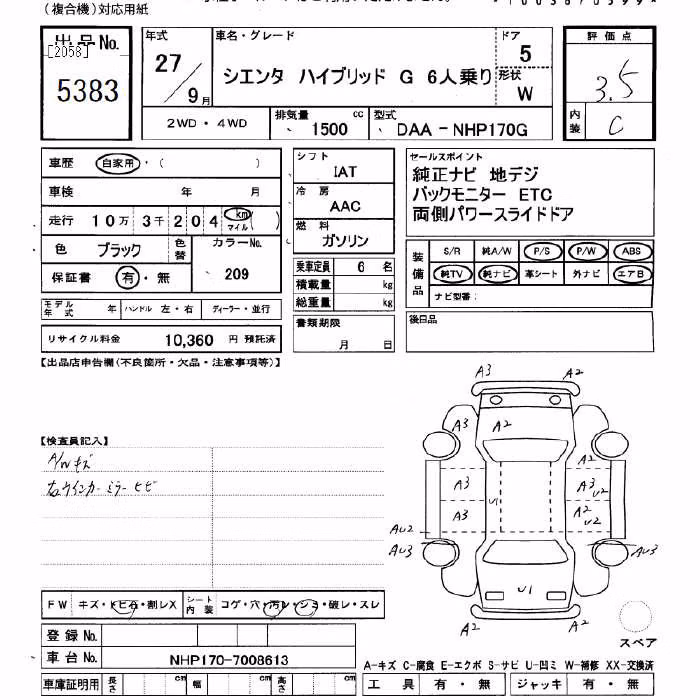 (複合機)対応用紙
出品No.
[2058]
5383
年式
27/9月
車名・グレード
シエンタ ハイブリッド G 6人乗り
ドア
5
形状
W
評価点
3.5
内装
C
2WD・4WD
排気量
1500
cc
型式
DAA-NHP170G
車歴
自家用・( )
車検 年 月
走行 10万 3千 204 km マイル ( )
色 ブラック
色替
カラーNo.
209
保証書 有・無
モデル年式 年
ハンドル 左・右
ディーラー・並行
リサイクル料金 10,360 円 預託済
シフト
IAT
冷房
AAC
燃料
ガソリン
乗車定員 6 名
積載量 kg
総重量 kg
書類期限
月 日
セールスポイント
純正ナビ 地デジ
バックモニター ETC
両側パワースライドドア
装備品
S/R 純A/W P/S P/W ABS
純TV 純ナビ 革シート 外ナビ エアB
ナビ型番:
後日品
【出品店申告欄(不良箇所・欠品・注意事項等)】
【検査員記入】
A/Wキズ
右ウインカーミラーヒビ
A3
A2
A3
A2
A2
A3
A3
U1
A3
U2
A2
U2
AU2
AU3
AU3
U1
A2
A2
スペア
FW キズ・トビ石・割レX
シート内装 コゲ・穴・汚レ・シミ・破レ・スレ
登録No.
車台No. NHP170-7008613
車庫証明用 長さ cm 幅 cm 高さ cm
A-キズ C-腐食 E-エクボ S-サビ U-凹ミ W-補修 XX-交換済
工具 有・無 ジャッキ 有・無